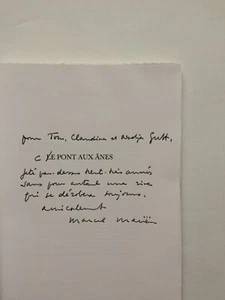 pour Tom, Claudine et Nadja Gutt,
CE PONT AUX ÂNES
jeté par-dessus trente-trois années
sans pour autant une rive
qui se dérobe toujours.
amicalement
Marcel Mariën